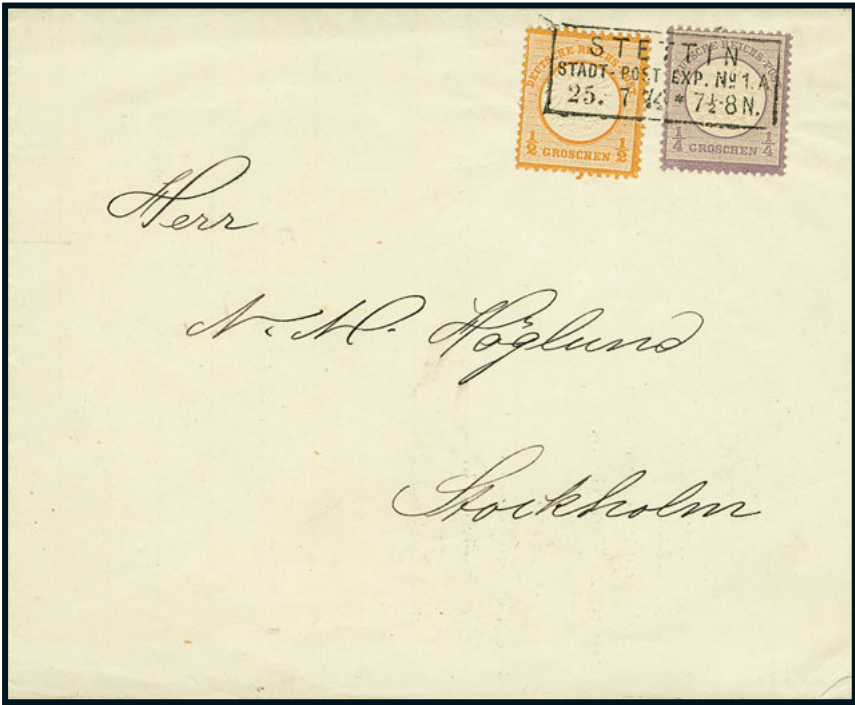 STETTIN
STADT-POST EXP. No 1. A
25. 7 74 * 7½-8N.
DEUTSCHE REICHS-POST
½ GROSCHEN ½
DEUTSCHE REICHS-POST
¼ GROSCHEN ¼
Herr
N. M. Höglund
Stockholm